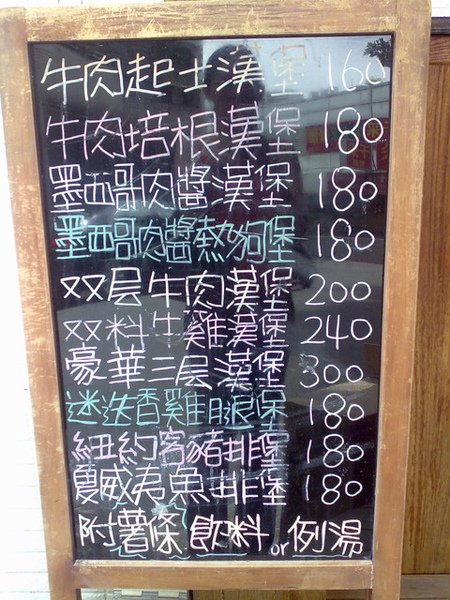 牛肉起士漢堡 160
牛肉培根漢堡 180
墨西哥肉醬漢堡 180
墨西哥肉醬熱狗堡 180
双层牛肉漢堡 200
双料牛雞漢堡 240
豪華三层漢堡 300
迷迭香雞腿堡 180
紐約客豬排堡 180
夏威夷魚排堡 180
附薯條 飲料 or 例湯